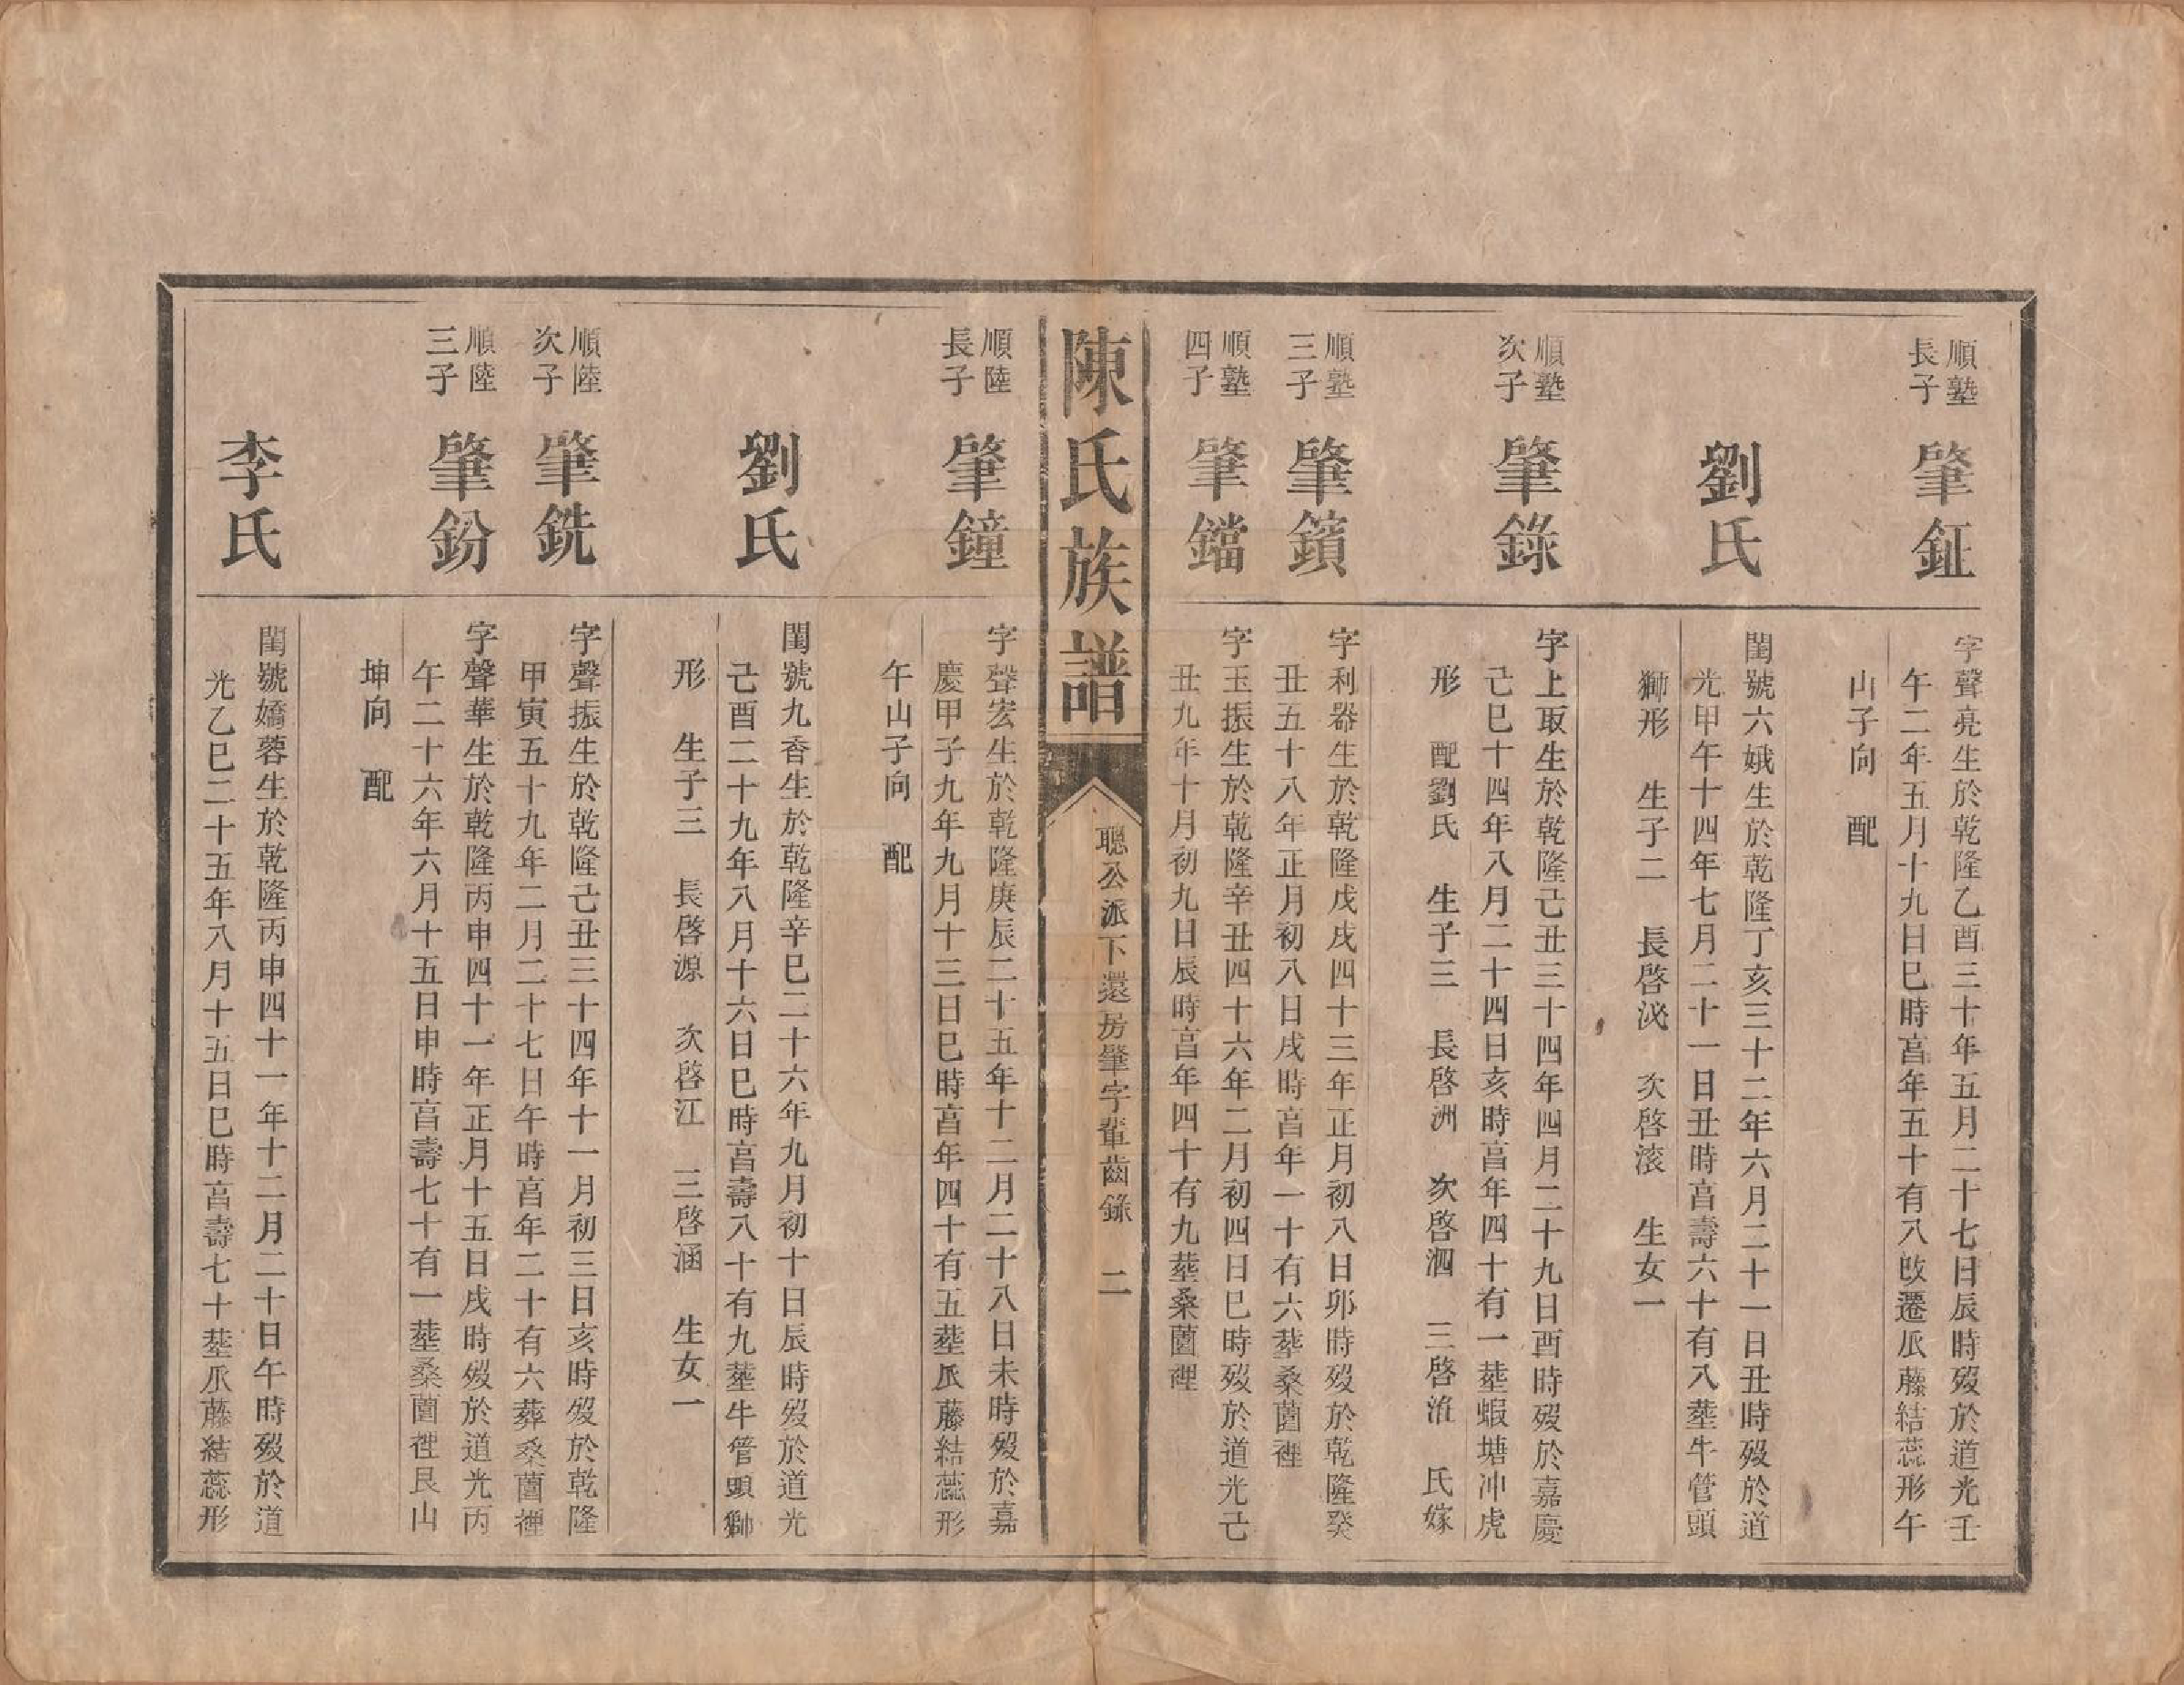 順塾
長子
肇鉦
字聲亮生於乾隆乙酉三十年五月二十七日辰時歿於道光壬
午二年五月十九日巳時亯年五十有八改遷瓜藤結蕊形午
山子向 配
劉氏
閨號六娥生於乾隆丁亥三十二年六月二十一日丑時歿於道
光甲午十四年七月二十一日丑時亯壽六十有八塟牛管頭
獅形 生子二 長啓泌 次啓滚 生女一
順塾
次子
肇錄
字上取生於乾隆己丑三十四年四月二十九日酉時歿於嘉慶
己巳十四年八月二十四日亥時亯年四十有一塟蝦塘冲虎
形 配劉氏 生子三 長啓洲 次啓泗 三啓淮 氏嫁
順塾
三子
肇鑌
字利器生於乾隆戊戌四十三年正月初八日卯時歿於乾隆癸
丑五十八年正月初八日戌時亯年一十有六葬桑薗裡
順塾
四子
肇鐺
字玉振生於乾隆辛丑四十六年二月初四日巳時歿於道光己
丑九年十月初九日辰時亯年四十有九塟桑薗裡
陳氏族譜
聰公派下還房肇字輩齒錄 二
順陸
長子
肇鐘
字聲宏生於乾隆庚辰二十五年十二月二十八日未時歿於嘉
慶甲子九年九月十三日巳時亯年四十有五塟瓜藤結蕊形
午山子向 配
劉氏
閨號九香生於乾隆辛巳二十六年九月初十日辰時歿於道光
己酉二十九年八月十六日巳時亯壽八十有九塟牛管頭獅
形 生子三 長啓源 次啓江 三啓涵 生女一
順陸
次子
肇銑
字聲振生於乾隆己丑三十四年十一月初三日亥時歿於乾隆
甲寅五十九年二月二十七日午時亯年二十有六葬桑薗裡
順陸
三子
肇鈖
字聲華生於乾隆丙申四十一年正月十五日戌時歿於道光丙
午二十六年六月十五日申時亯壽七十有一塟桑薗裡艮山
坤向 配
李氏
閨號嬌蓉生於乾隆丙申四十一年十二月二十日午時歿於道
光乙巳二十五年八月十五日巳時亯壽七十塟瓜藤結蕊形